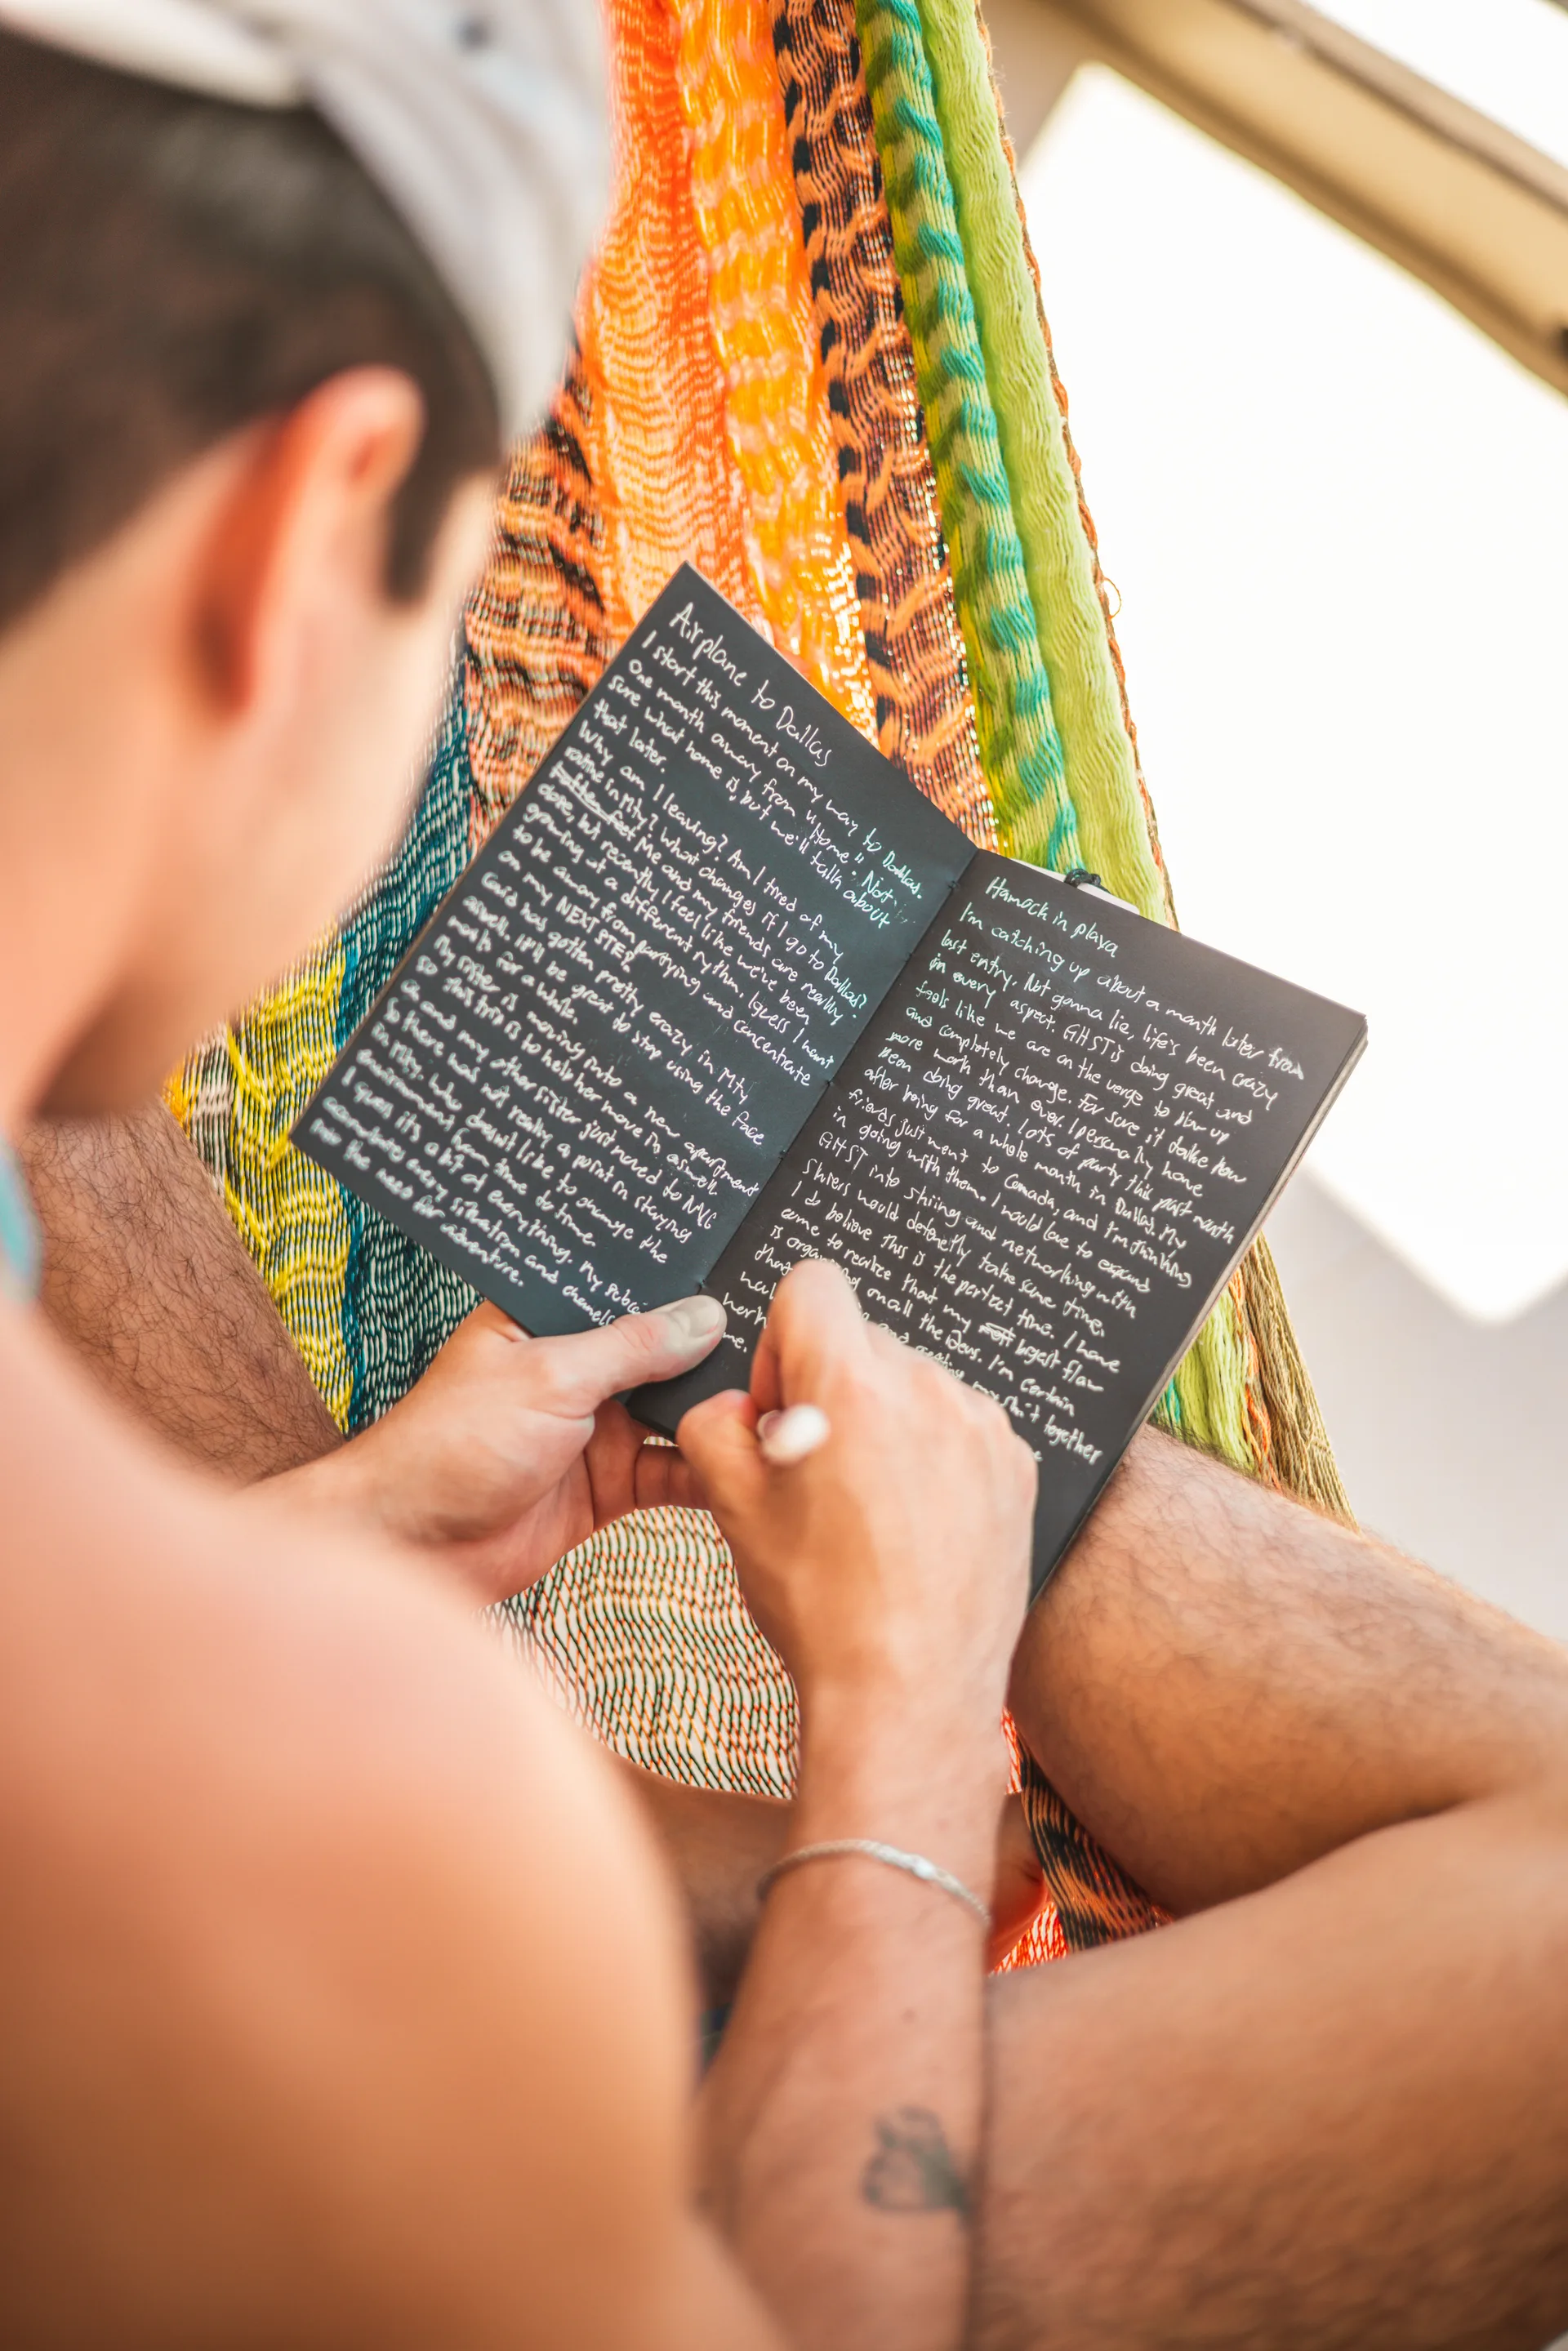 Airplane to Dallas
I start this moment on my way to Dallas.
one month away from "Home". Not
sure what home is, but we'll talk about
that later.
Why am I leaving? Am I tired of my
routine in Mty? What changes if I go to Dallas?
Me and my friends are really
close, but recently I feel like we've been
growing at a different rythm, I guess I want
to be away from partying and concentrate
on my NEXT STEP.
Gaid has gotten pretty crazy in Mty
aswell, it'll be great to stop using the face
mask for a while.
My sister is moving into a new apartment
so this trip is to help her move in aswell.
and my other sister just moved to NYC
so there was not really a point in staying
in Mty. Who doesn't like to change the
environment from time to time
I guess it's a bit of everything. My
every situation and
me the need for adventure.
Hamock in playa
I'm catching up about a month later from
last entry. Not gonna lie, life's been crazy
in every aspect. GHST is doing great and
feels like we are on the verge to blow up
and completely change. For sure it take
more work than ever. I personally have
been doing great, lots of party this past month
after being for a whole month in Dallas. My
friends just went to Canada, and I'm thinking
in going with them. I would love to expand
GHST into skiing and networking with
skiers would definetly take some time.
I do believe this is the perfect time. I have
came to realize that my bigest flaw
is on all the ideas. I'm certain
my sh*t together
me.